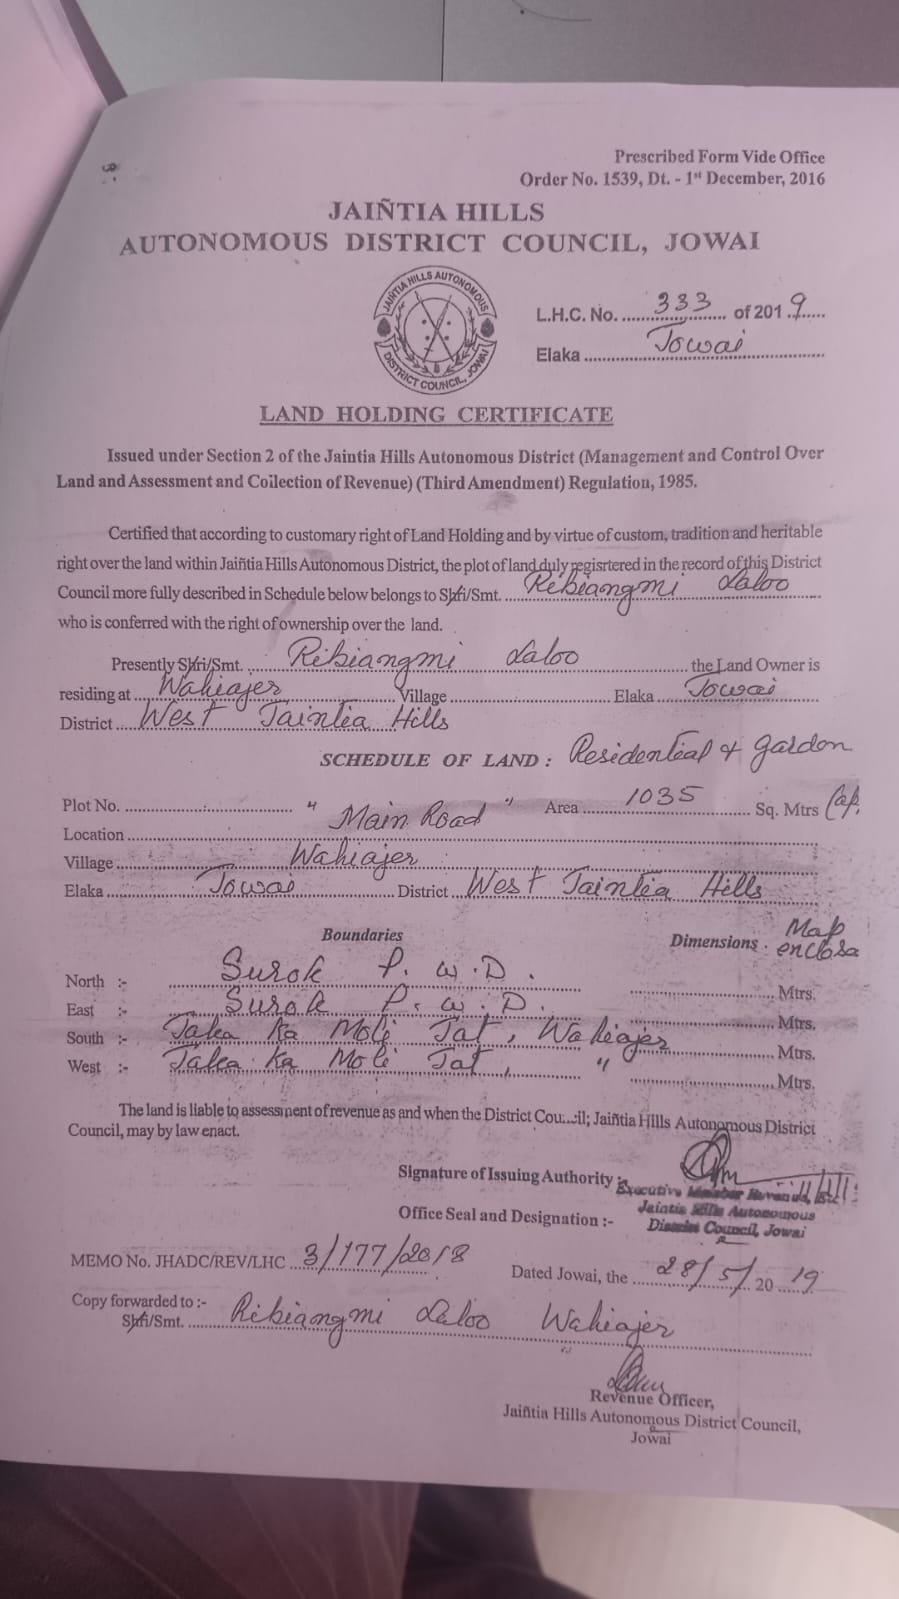 Prescribed Form Vide Office
Order No. 1539, Dt. - 1st December, 2016
JAIÑTIA HILLS
AUTONOMOUS DISTRICT COUNCIL, JOWAI
JAIÑTIA HILLS AUTONOMOUS
DISTRICT COUNCIL, JOWAI
L.H.C. No. 333 of 2019
Elaka Jowai
LAND HOLDING CERTIFICATE
Issued under Section 2 of the Jaintia Hills Autonomous District (Management and Control Over
Land and Assessment and Collection of Revenue) (Third Amendment) Regulation, 1985.
Certified that according to customary right of Land Holding and by virtue of custom, tradition and heritable
right over the land within Jaiñtia Hills Autonomous District, the plot of land duly regisrtered in the record of this District
Council more fully described in Schedule below belongs to Shri/Smt. Ribiangmi Laloo
who is conferred with the right of ownership over the land.
Presently Shri/Smt. Ribiangmi Laloo the Land Owner is
residing at Wahiajer Village Elaka Jowai
District West Jaintia Hills
SCHEDULE OF LAND : Residential & gardon
Plot No. Area 1035 Sq. Mtrs
Location " Main Road "
Village Wahiajer
Elaka Jowai District West Jaintia Hills
Boundaries Dimensions . Map enclosa
North :- Surok P.W.D. Mtrs.
East :- Surok P.W.D. Mtrs.
South :- Jaka Ka Moli Tat, Wahiajer Mtrs.
West :- Jaka Ka Moli Tat, " Mtrs.
The land is liable to assessment of revenue as and when the District Cou...cil; Jaiñtia Hills Autonomous District
Council, may by law enact.
Signature of Issuing Authority :-
Executive Member Revenue,
Office Seal and Designation :- Jaintia Hills Autonomous
District Council, Jowai
MEMO No. JHADC/REV/LHC 3/177/2018
Dated Jowai, the 28/5/2019
Copy forwarded to :-
Shri/Smt. Ribiangmi Laloo Wahiajer
Revenue Officer,
Jaiñtia Hills Autonomous District Council,
Jowai